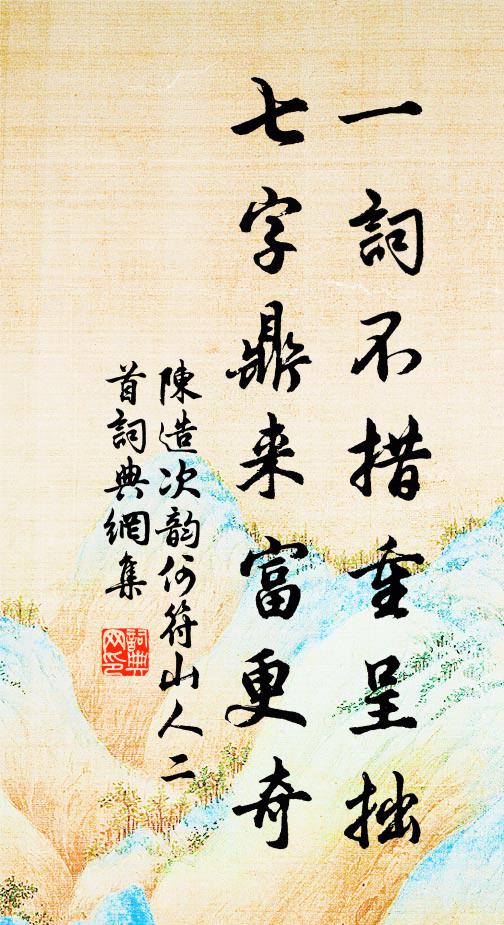 一詞不措重呈拙
七字鼎来富更奇
陳造次韵何符山人二
首詞典網集
詞典
网印